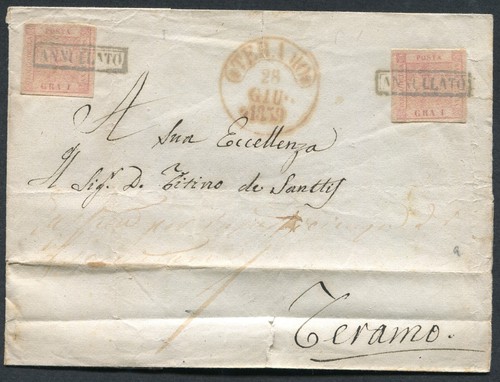 POSTA
ANNULLATO
GRA 1
TERAMO
28
GIU
1859
POSTA
ANNULLATO
GRA 1
A Sua Eccellenza
Il Sig. D. Titino de Sanctis
Teramo.